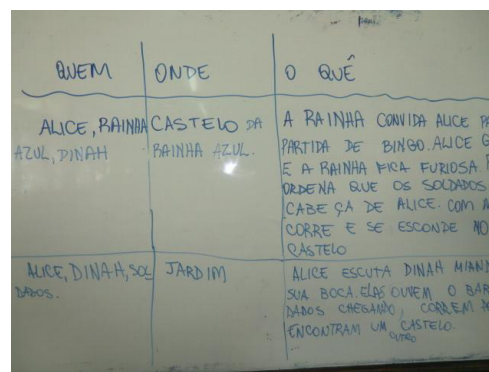 QUEM ONDE O QUÊ
ALICE, RAINHA CASTELO DA A RAINHA CONVIDA ALICE
AZUL, DINAH RAINHA AZUL. PARTIDA DE BINGO. ALICE
E A RAINHA FICA FURIOSA.
ORDENA QUE OS SOLDADOS
CABEÇA DE ALICE. COM
CORRE E SE ESCONDE NO
CASTELO
ALICE, DINAH, SOL JARDIM ALICE ESCUTA DINAH
DADOS. SUA BOCA. ELAS OUVEM O
DADOS CHEGANDO, CORREM
ENCONTRAM UM CASTELO.
OUTRO